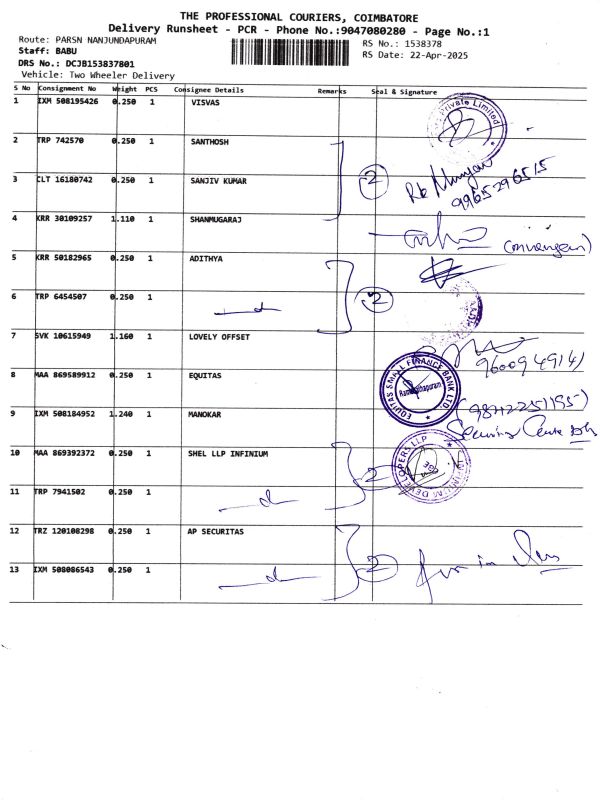 THE PROFESSIONAL COURIERS, COIMBATORE
Delivery Runsheet - PCR - Phone No.:9047080280 - Page No.:1
Route: PARSN NANJUNDAPURAM
RS No.: 1538378
Staff: BABU
RS Date: 22-Apr-2025
DRS No.: DCJB153837801
Vehicle: Two Wheeler Delivery
S No Consignment No Weight PCS Consignee Details Remarks Seal & Signature
1 IXM 508195426 0.250 1 VISVAS
Private Limited
2 TRP 742570 0.250 1 SANTHOSH
2
9965296515
3 CLT 16180742 0.250 1 SANJIV KUMAR
4 KRR 30109257 1.110 1 SHANMUGARAJ
5 KRR 50182965 0.250 1 ADITHYA
2
6 TRP 6454507 0.250 1
7 SVK 10615949 1.160 1 LOVELY OFFSET
8 MAA 869589912 0.250 1 EQUITAS
EQUITAS SMALL FINANCE BANK LTD.
Ramanathapuram
9 IXM 508184952 1.240 1 MANOKAR
10 MAA 869392372 0.250 1 SHEL LLP INFINIUM
2
INFINIUM DEVELOPERS LLP
CBE
11 TRP 7941502 0.250 1
12 TRZ 120108298 0.250 1 AP SECURITAS
2
13 IXM 508086543 0.250 1